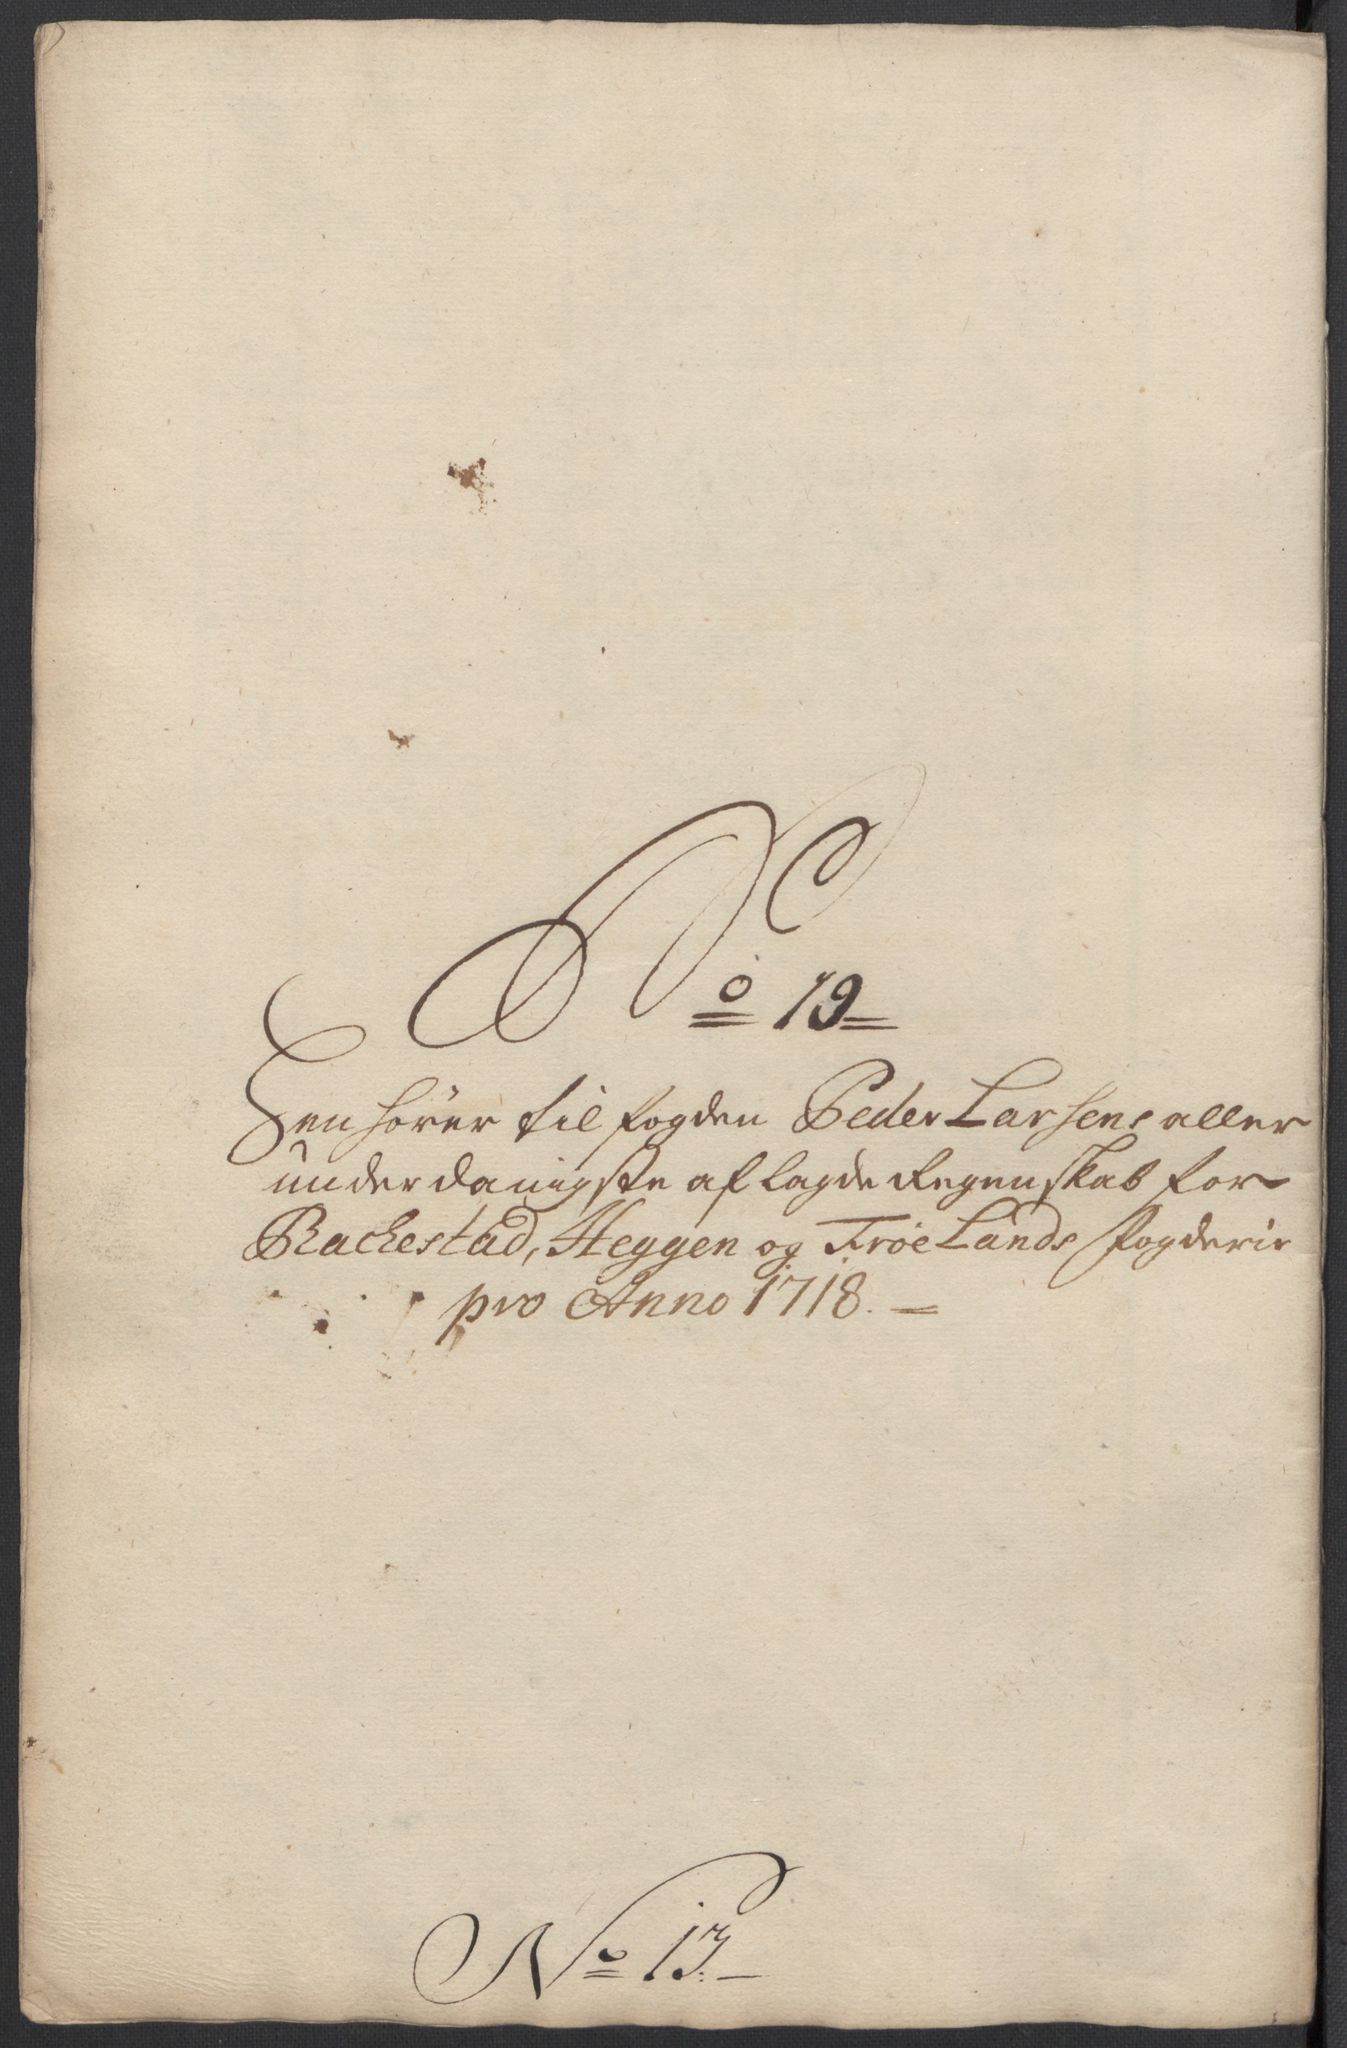 No 19
Henhører til fogden Peder Larsens aller
underdanigste aflagde Regenskab for
Rackestad, Heggen og Frøelands fogderie
pro Anno 1718.
No 13.